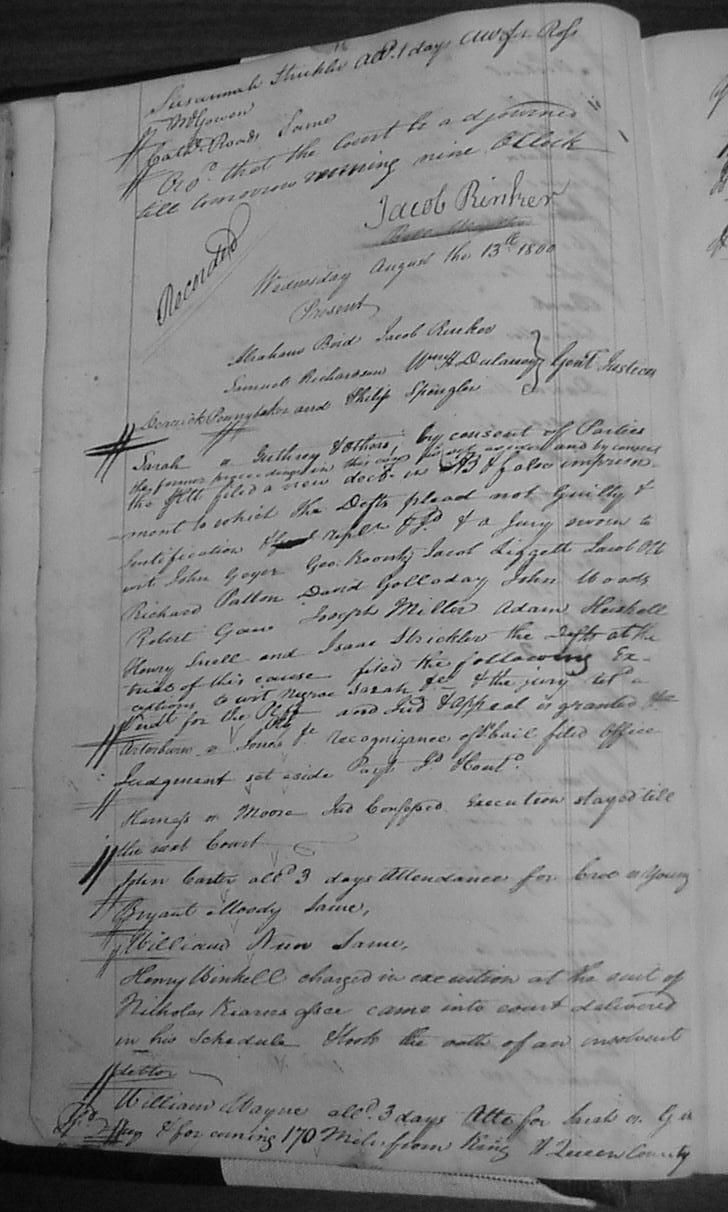 Susannah Strickler all.d 1 days Atte for Ross
vs McGowen
Cath.e Roads Same
Ord.d that the Court be adjourned
till tomorrow morning nine OClock
Jacob Rinker
Recorded
Wednesday August the 13th 1800
Present
Abraham Bird Jacob Rinker
Samuel Richardson Wm H Dulaney } Gent Justices
Derrick Pennybaker and Philip Spengler
Sarah v Guthrey & Others, by consent of Parties
the former proceedings in this case set aside and by consent
the Plt filed a new decl.n in AB & false imprison-
ment to which the Defts plead not Guilty &
Justification & Jd & a Jury sworn to
wit John Goyer Geo. Jacob Liggett Jacob Ott
Richard Patton David Golloday John Woods
Robert Joseph Miller Adam Heiskell
Henry Snell and Isaac Strickler the Defts at the
trial of this cause filed the following Ex-
ceptions to wit Negroe Sarah &c & the jury ret.d a
Verdt for the Plt and Jud & Appeal is granted
Arterburn v Jones recognizance of Sp.bail filed Office
Judgment set aside Paymt Jd & Cont.d
Harness v Moore Jud Confessed Execution stayed till
the next Court
John Carter all.d 3 days Attendance for Croe v Young
Bryant Moody Same,
William Same,
Henry Winkell charged in execution at the suit of
Nicholas Kearns assee came into court delivered
in his Schedule & took the oath of an insolvent
debtor
William Wayne all.d 3 days Atte for Sarah v. Gu
& for coming 170 Miles from King & Queen County